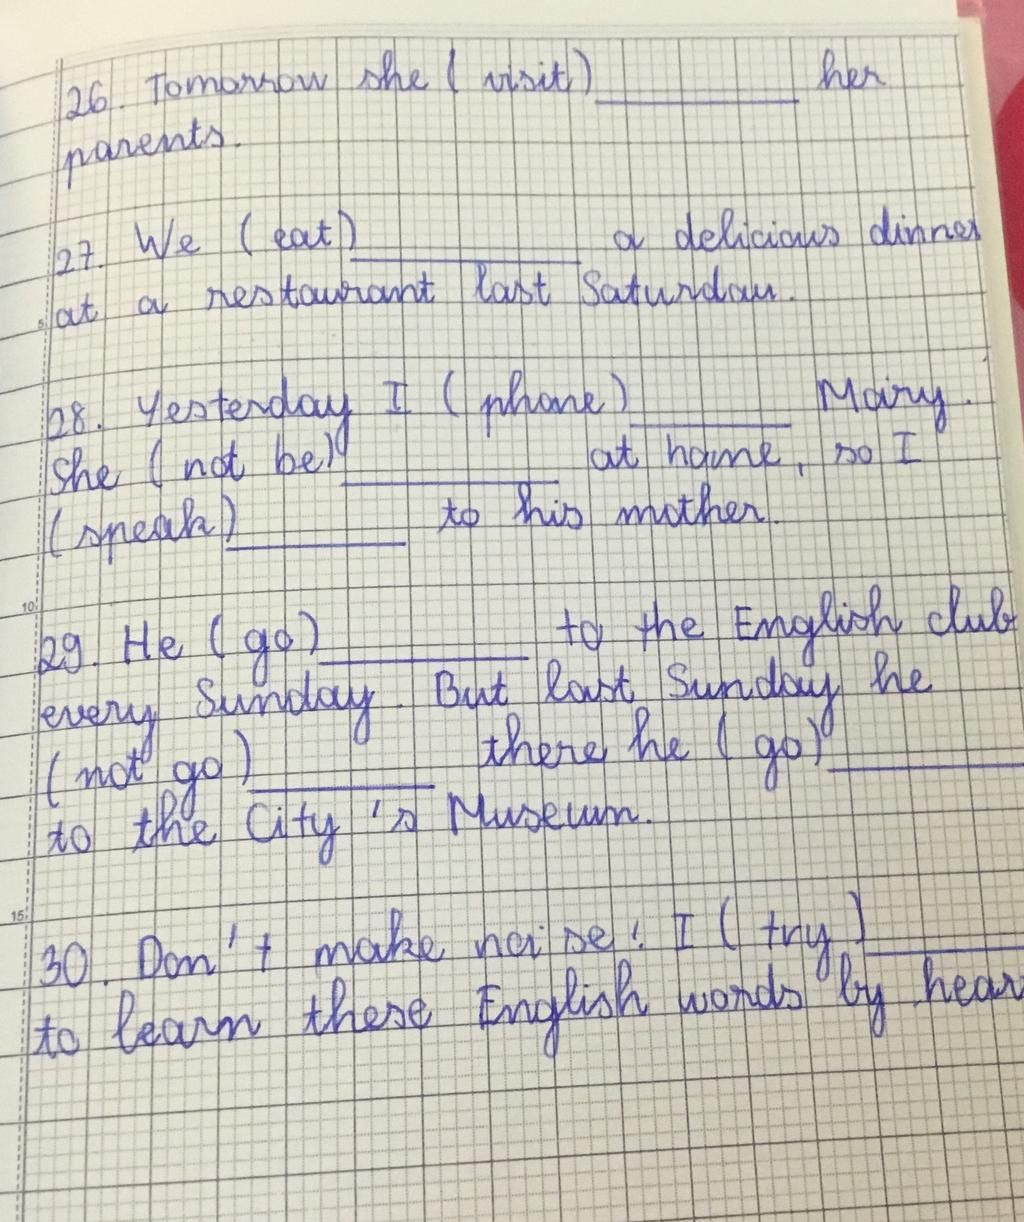 26. Tomorrow she ( visit) __________ her
parents.
27. We ( eat) __________ a delicious dinner
at a restaurant last Saturday.
28. Yesterday I ( phone) __________ Mairy.
She ( not be) __________ at home, so I
( speak) __________ to his mother.
29. He ( go) __________ to the English club
every Sunday. But last Sunday he
( not go) __________ there he ( go) __________
to the City 's Museum.
30. Don't make noise! I ( try ) __________
to learn these English words by hear
5
10
15